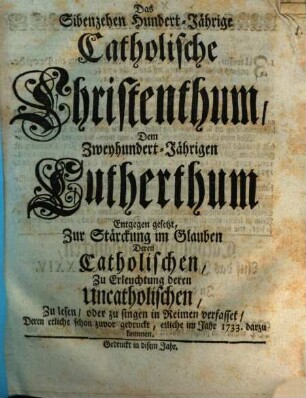 Das
Sibenzehen Hundert-Jährige
Catholische
Christenthum/
Dem
Zweyhundert-Jährigen
Lutherthum
Entgegen gesetzt,
Zur Stärckung im Glauben
Deren
Catholischen,
Zu Erleuchtung deren
Uncatholischen,
Zu lesen/ oder zu singen in Reimen verfasset/
Deren etliche schon zuvor gedruckt, etliche im Jahr 1733. darzu
kommen.
Gedruckt in disem Jahr.